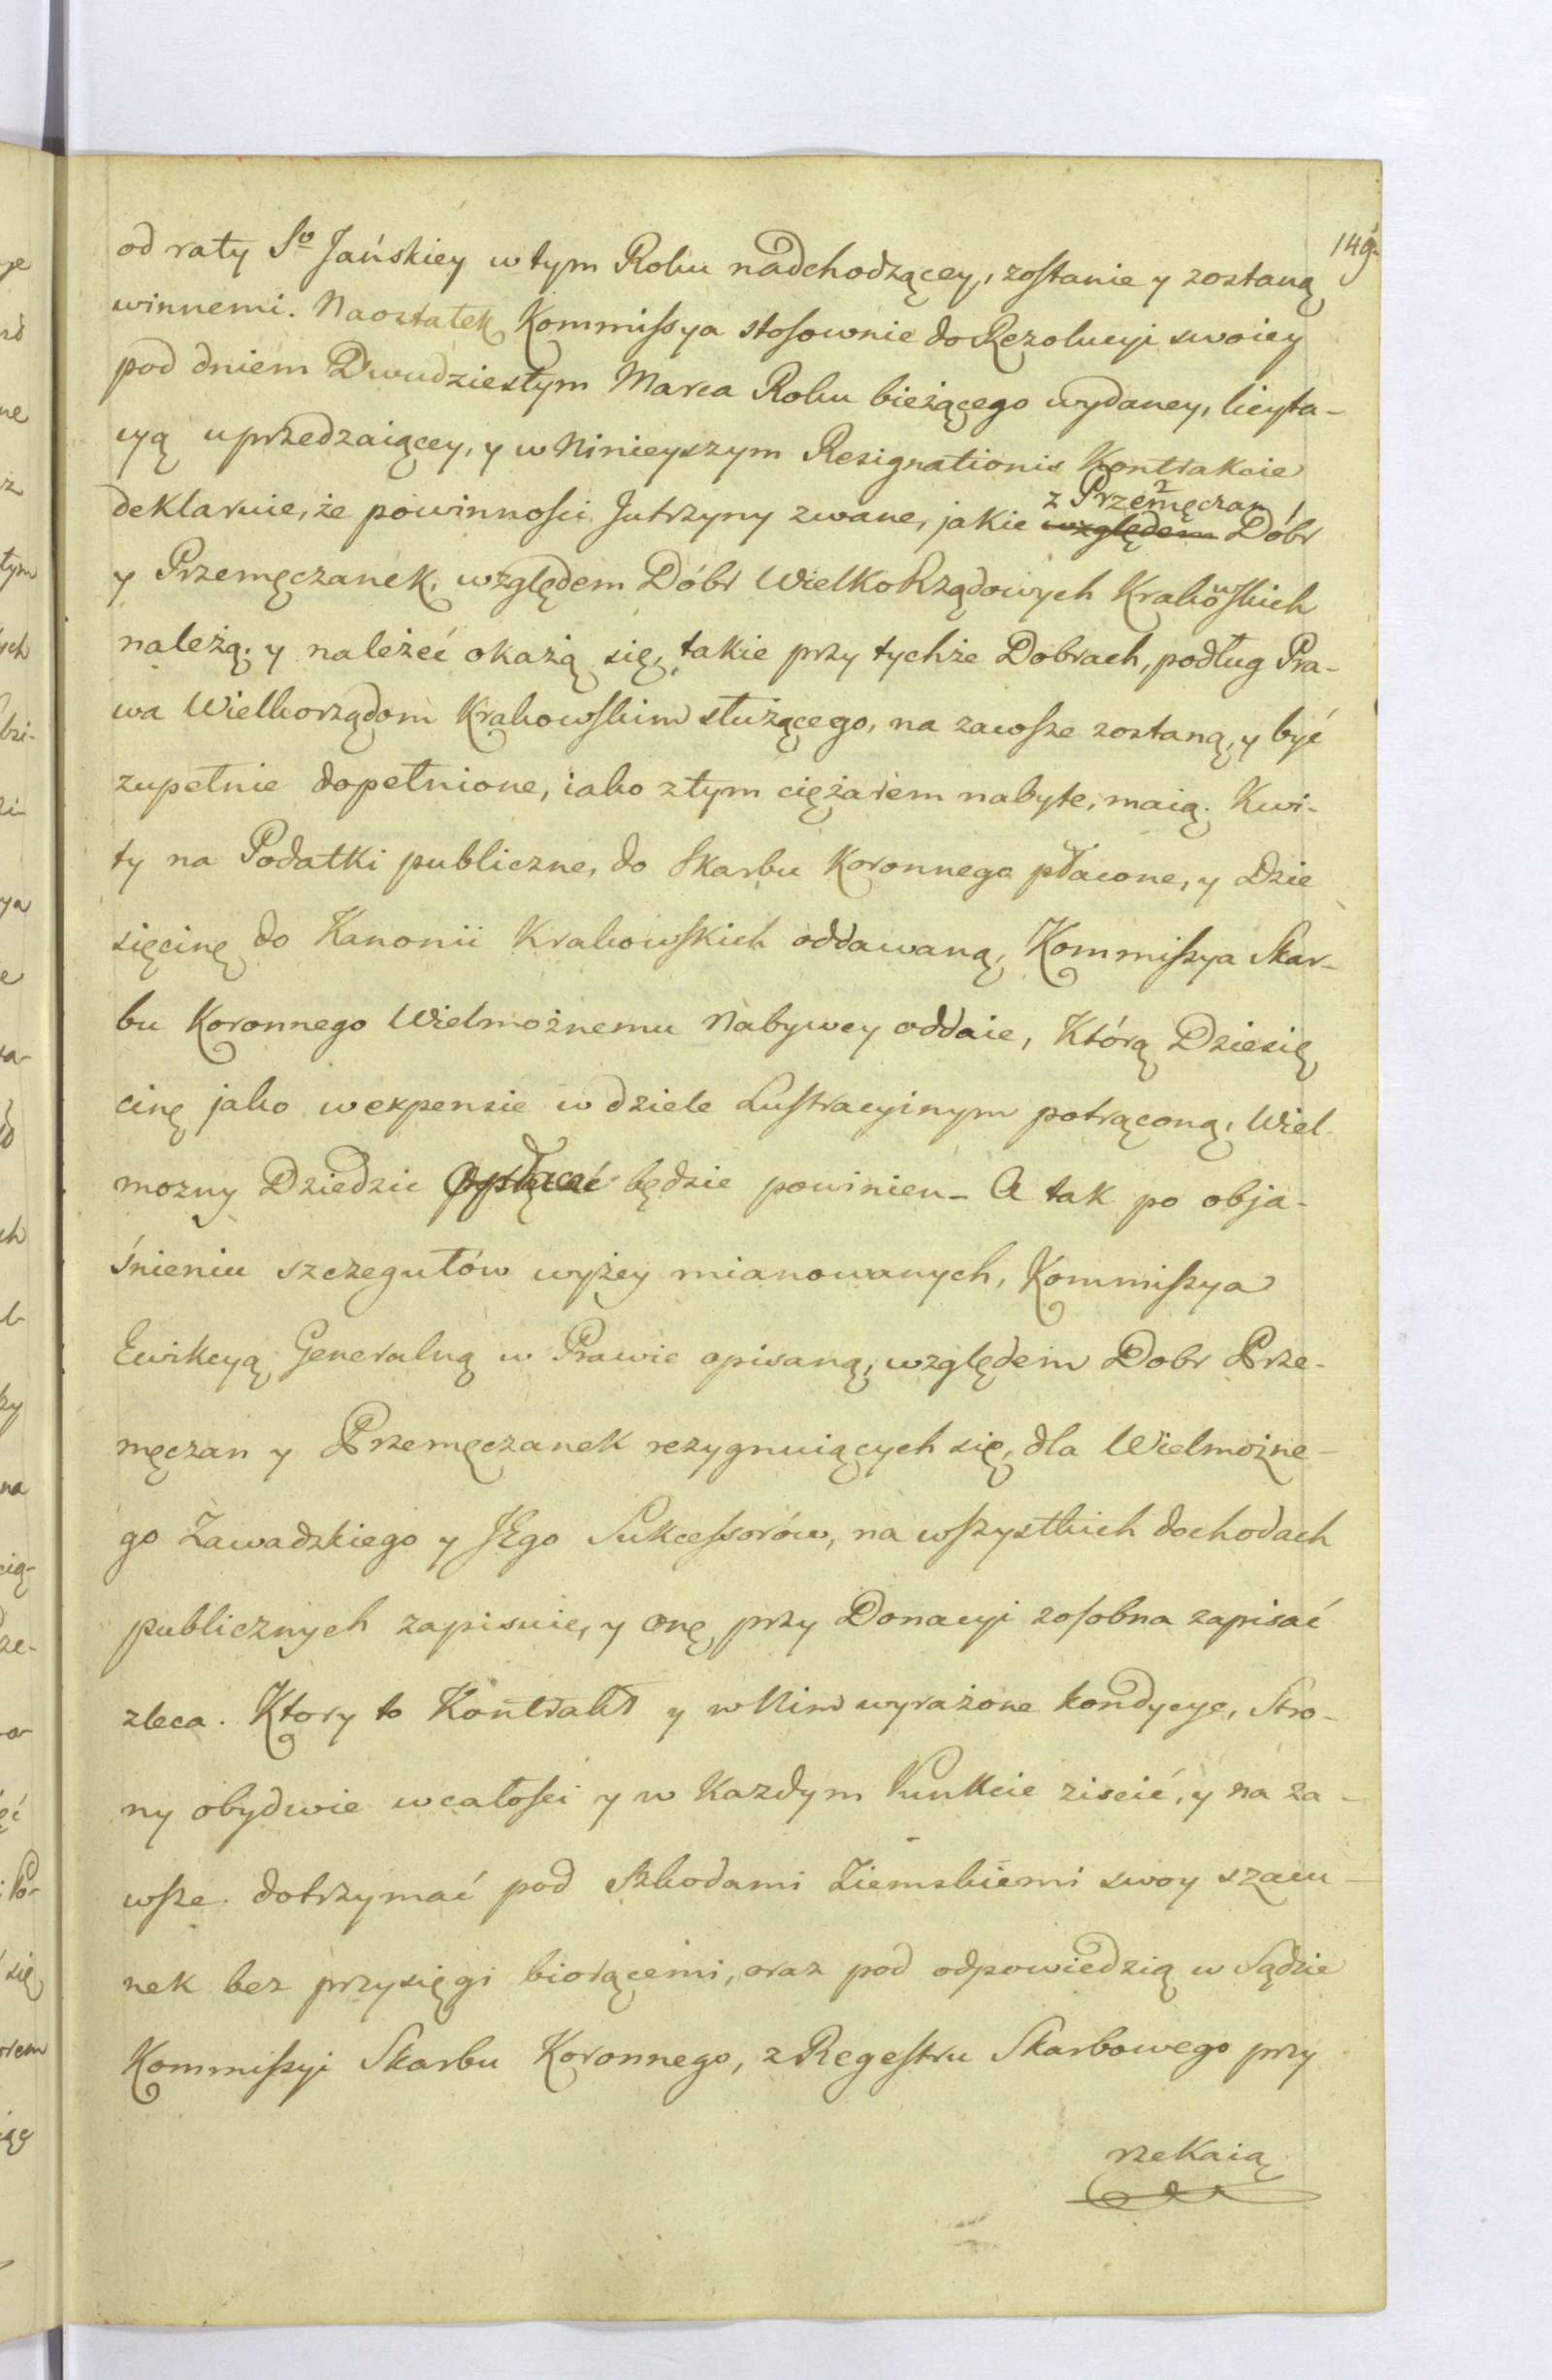 149.
od raty So Jańskiey w tym Roku nadchodzącey, zostanie y zostaną
winnemi. Naostatek Kommissya stosownie do Rezolucyi swoiey
pod dniem Dwudziestym Marca Roku bieżącego wydaney, licyta-
cyą uprzedzaiącey, y w Ninieyszym Resignationis Kontrakcie
deklaruie, że powinności Jutrzyny zwane, jakie względem z Przemęczan Dóbr
y Przemęczanek, względem Dóbr WielkoRządowych Krakowskich
należą, y należeć okażą się, takie przy tychże Dobrach, podług Pra-
wa Wielkorządom Krakowskim służącego, na zawsze zostaną, y być
zupełnie dopełnione, iako z tym ciężarem nabyte, maią. Kwi-
ty na Podatki publiczne, do Skarbu Koronnego płacone, y Dzie
sięcinę do Kanonii Krakowskich oddawaną, Kommissya Skar-
bu Koronnego Wielmożnemu Nabywcy oddaie, Którą Dziesię
cinę jako w expensie w dziele Lustracyinym potrąconą, Wiel-
mozny Dziedzic będzie powinien – A tak po obja-
śnieniu szczegułów wyżey mianowanych, Kommissya
Ewikcyą Generalną w Prawie opisaną, względem Dobr Prze-
męczan y Przemęczanek rezygnuiących się, dla Wielmożne-
go Zawadzkiego y JEgo Sukcessorów, na wszystkich dochodach
publicznych zapisuie, y onę przy Donacyi zosobna zapisać
zleca. Ktory to Kontrakt y w Nim wyrażone kondycye, Stro-
ny obydwie w całości y w Kazdym Punkcie ziscić, y na za-
wsze dotrzymać pod Szkodami Ziemskiemi swoy szacu-
nek bez przysięgi biorącemi, oraz pod odpowiedzią w Sądzie
Kommissyi Skarbu Koronnego, z Regestru Skarbowego przy
rzekaią